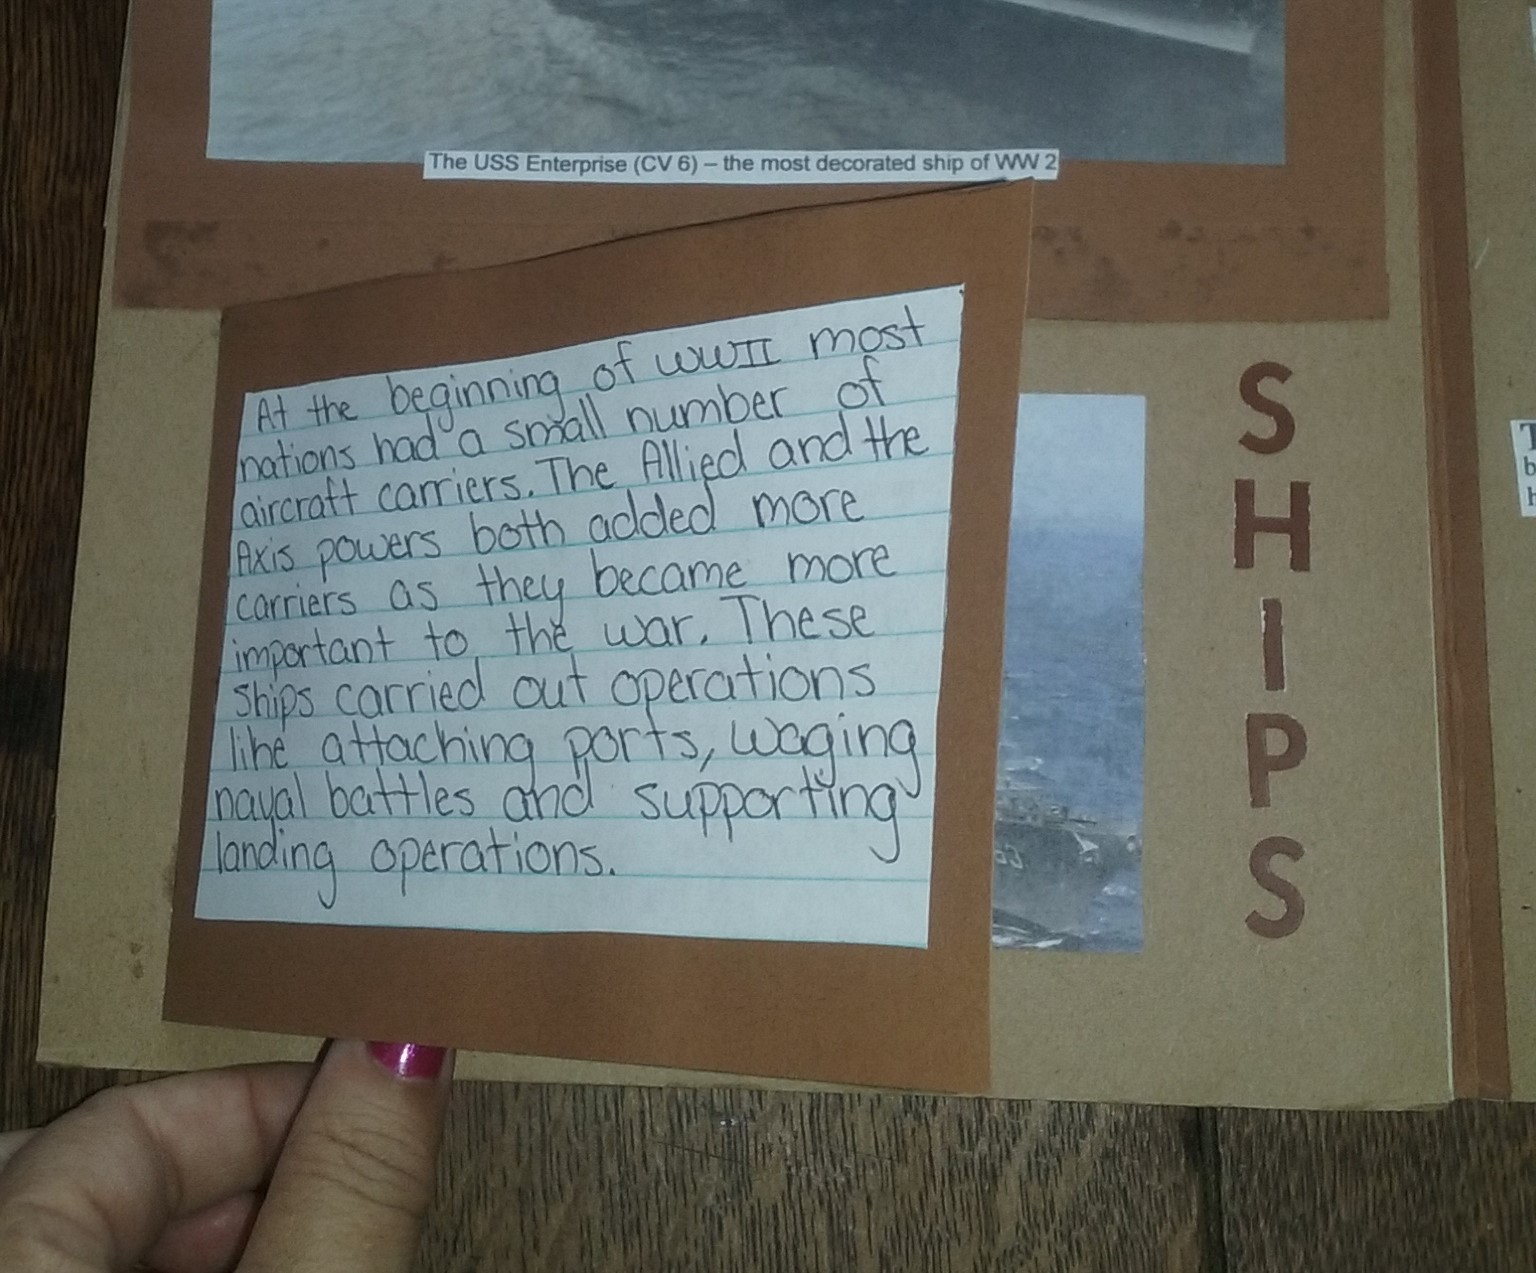 The USS Enterprise (CV 6) – the most decorated ship of WW 2
At the beginning of WWII most
nations had a small number of
aircraft carriers. The Allied and the
Axis powers both added more
carriers as they became more
important to the war. These
ships carried out operations
like attaching ports, waging
naval battles and supporting
landing operations.
SHIPS